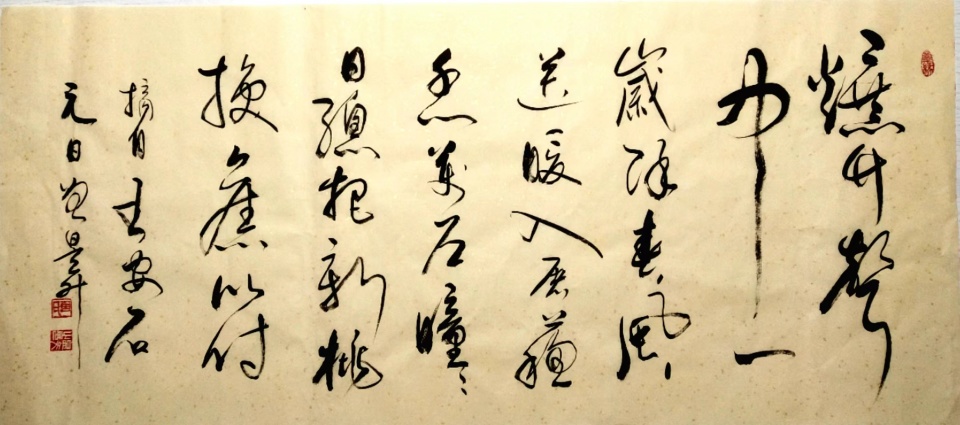 爆竹聲
中一
歲除春風
送暖入屠蘇
千门萬户曈々
日總把新桃
換舊符
摘自王安石
元日